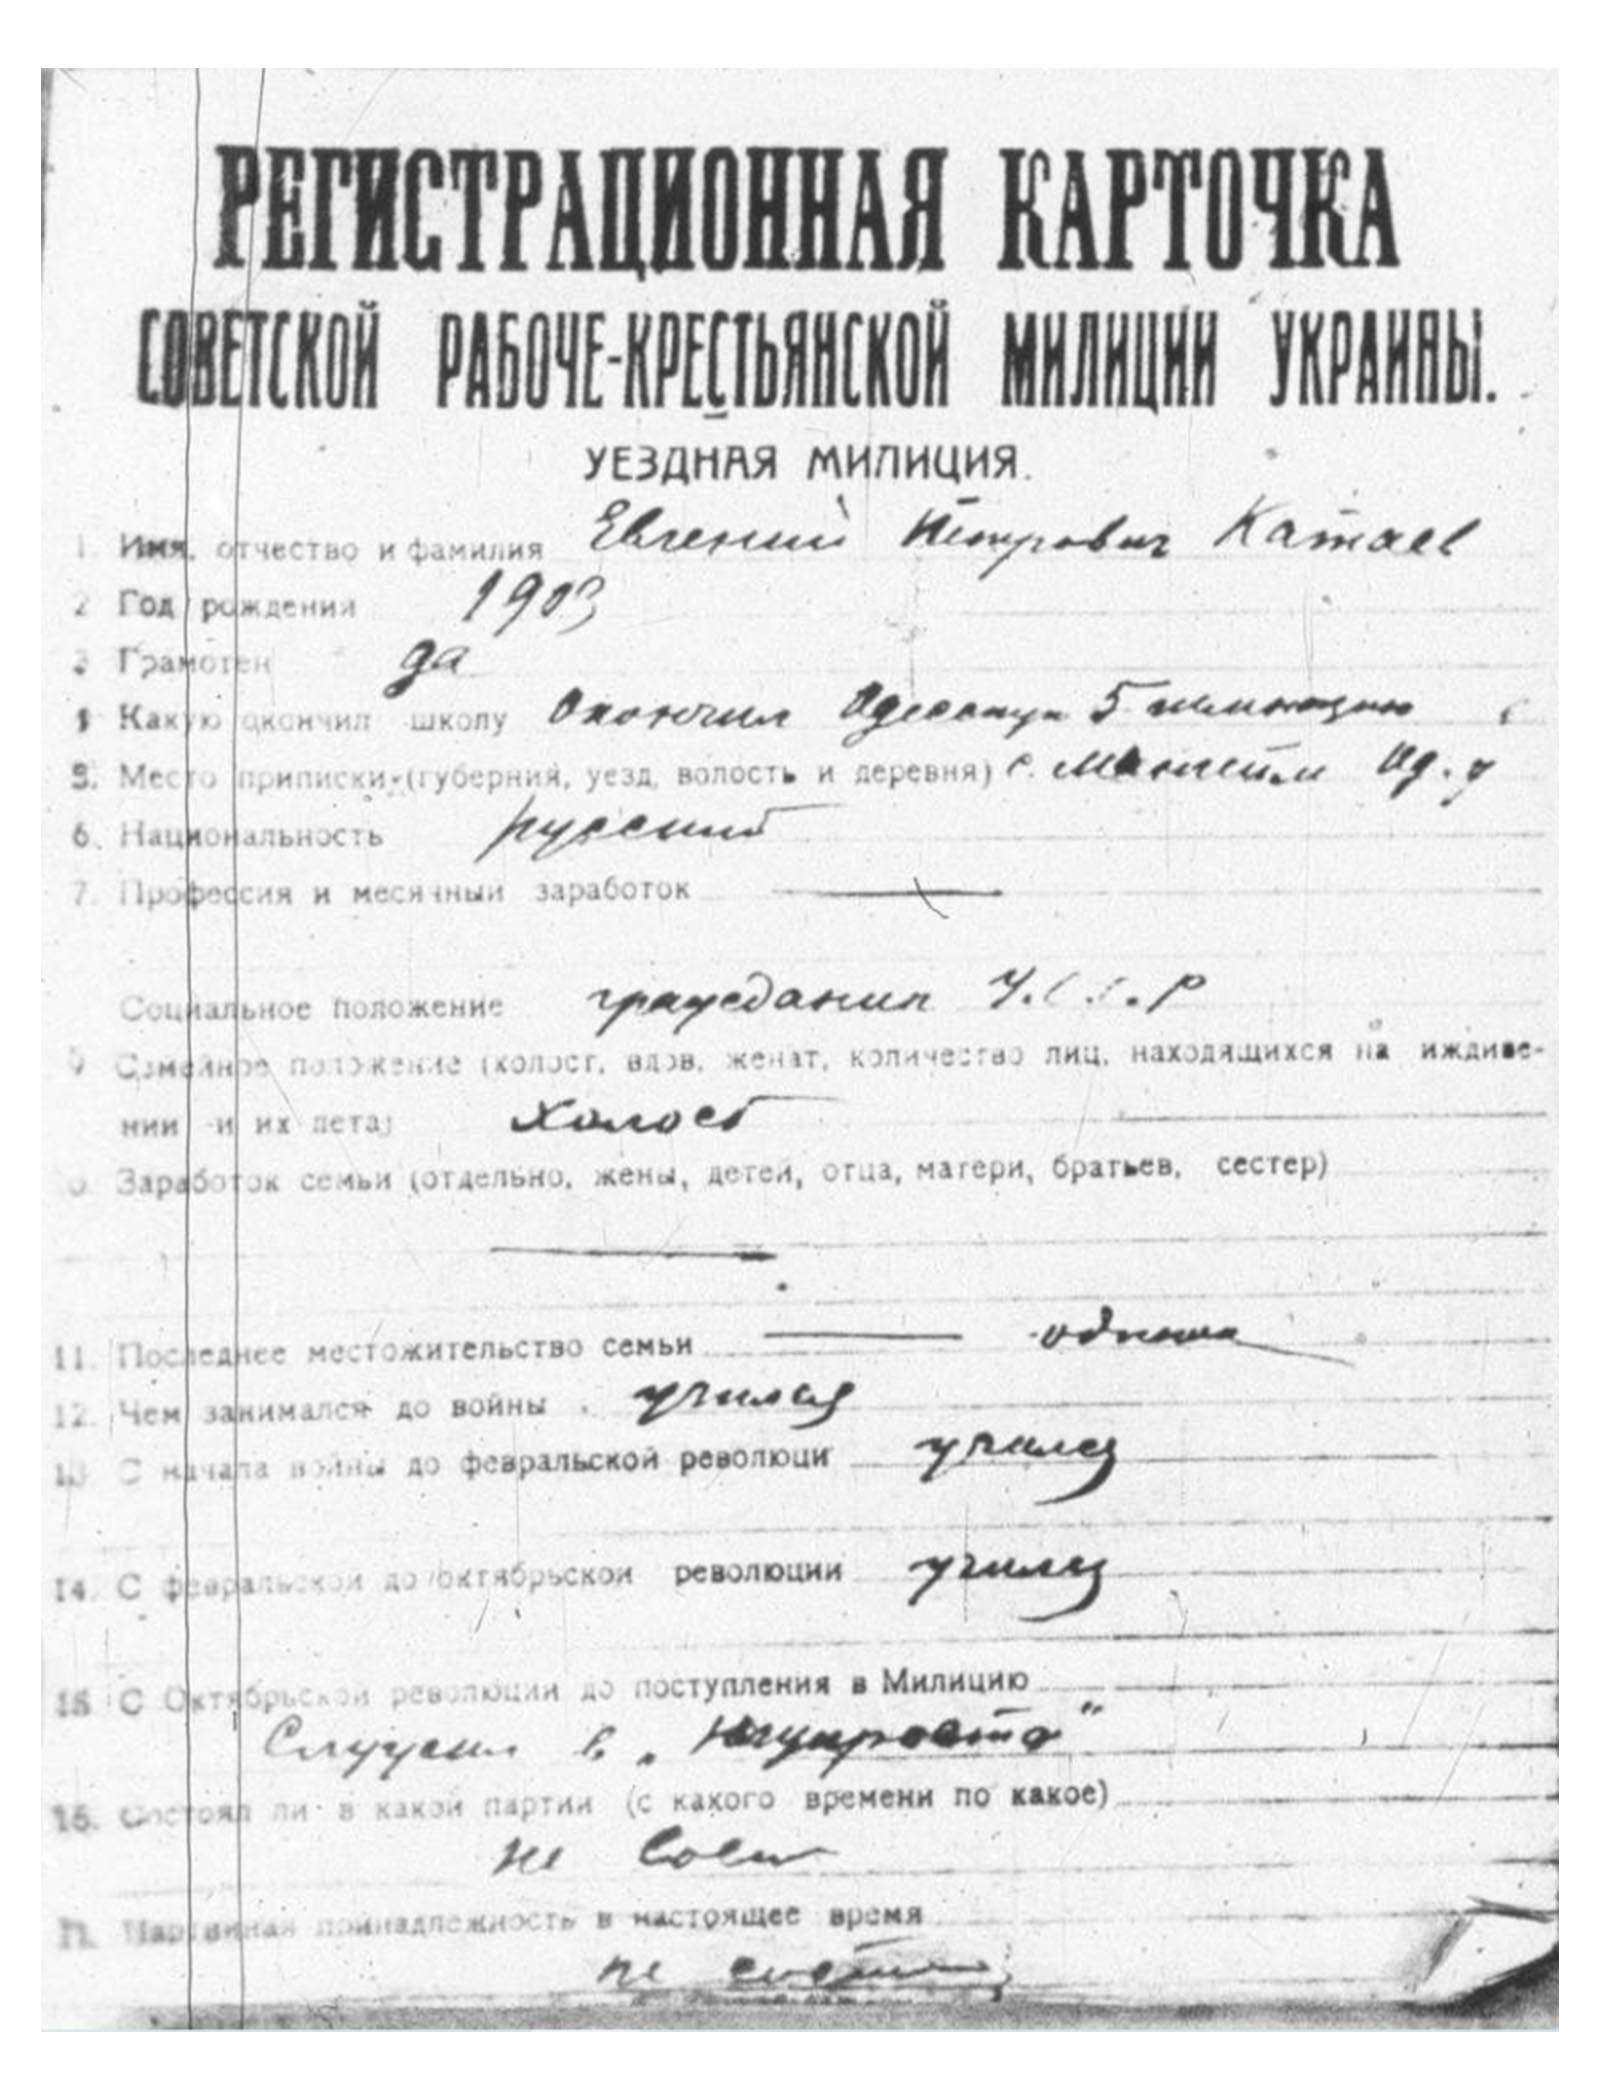 РЕГИСТРАЦИОННАЯ КАРТОЧКА
СОВЕТСКОЙ РАБОЧЕ-КРЕСТЬЯНСКОЙ МИЛИЦИИ УКРАИНЫ.
УЕЗДНАЯ МИЛИЦИЯ.
1. Имя, отчество и фамилия Евгений Петрович Катаев
2 Год рождения 1903
3 Грамотен да
4 Какую окончил школу Окончил Одесскую 5 гимназию
5. Место приписки (губерния, уезд, волость и деревня) с. Мангейм Од. у
6. Национальность русский
7. Профессия и месячный заработок
Социальное положение гражданин У.С.С.Р
9 Семейное положение (холост, вдов, женат, количество лиц, находящихся на иждиве-
нии и их лета) холост
0. Заработок семьи (отдельно, жены, детей, отца, матери, братьев, сестер)
11. Последнее местожительство семьи
12. Чем занимался до войны учился
13 С начала войны до февральской революци учился
14. С февральской до октябрьской революции учился
15 С Октябрьской революции до поступления в Милицию
Служил в „Югукроста"
16. Состоял ли в какой партии (с какого времени по какое)
не сост
17. Партийная принадлежность в настоящее время
не состою